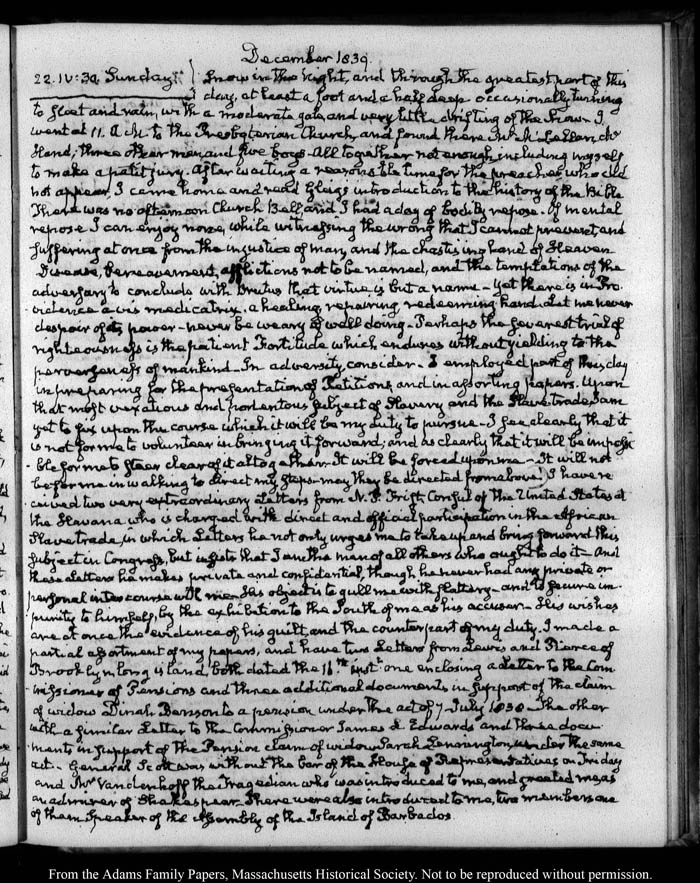 December 1839.
22. IV:30. Sunday. Snow in the Night, and through the greatest part of this
day, at least a foot and a half deep occasionally turning
to sleet and rain, with a moderate gale, and very little drifting of the Snow. I
went at 11. A.M. to the Presbyterian Church, and found there
three other men, and five boys. All together not enough, including myself
to make a petit jury. After waiting a reasonable time for the preacher who did
not appear, I came home and read Gleig's introduction to the history of the Bible
There was no afternoon Church Bell, and I had a day of bodily repose. Of mental
repose I can enjoy none, while witnessing the wrong that I cannot prevent, and
suffering at once from the injustice of man, and the chastising hand of Heaven
Disease, bereavement, afflictions not to be named, and the temptations of the
adversary to conclude with Brutus that virtue is but a name - Yet there is in Pro-
vidence a vis medicatrix. a healing, repairing, redeeming hand. Let me never
despair of its power - never be weary of well doing - Perhaps the severest trial of
righteousness is the patient Fortitude which endures without yielding to the
perverseness of mankind - In adversity, consider - I employed part of this day
in preparing for the presentation of Petitions, and in assorting papers. Upon
that most vexatious and portentous subject of Slavery and the Slave trade, I am
yet to fix upon the course which it will be my duty to pursue - I see clearly that it
is not for me to volunteer in bringing it forward; and as clearly that it will be impossi-
ble for me to steer clear of it altogether. It will be forced upon me - It will not
be for me in walking to direct my steps - may they be directed from above! I have re-
ceived two very extraordinary Letters from N. P. Trist, Consul of the United States at
the Havana who is charged with direct and official participation in the African
Slave trade, in which Letters he not only urges me to take up and bring forward this
subject in Congress, but insists that I am the man of all others who ought to do it - And
these Letters he makes private and confidential, though he never had any private or
personal intercourse with me. His object is to gull me with flattery - and to secure im-
punity to himself, by the exhibition to the South of me as his accuser - His wishes
are at once the evidence of his guilt, and the counterpart of my duty. I made a
partial assortment of my papers, and have two Letters from Lewis and Pierce of
Brooklyn, long island, both dated the 16th. inst. one enclosing a letter to the Com-
missioner of Pensions and three additional documents in support of the claim
of widow Dinah Benson to a pension under the act of 7 July 1838 - The other
with a similar Letter to the Commissioner James L Edwards and three docu-
ments in support of the Pension claim of widow Sarah under the same
act - General Scott was without the bar of the House of Representatives on Friday
and Mr. Vandenhoff the Tragedian who was introduced to me, and greeted me as
an admirer of Shakespear. There were also introduced to me, two members one
of them Speaker of the Assembly of the Island of Barbados.
From the Adams Family Papers, Massachusetts Historical Society. Not to be reproduced without permission.